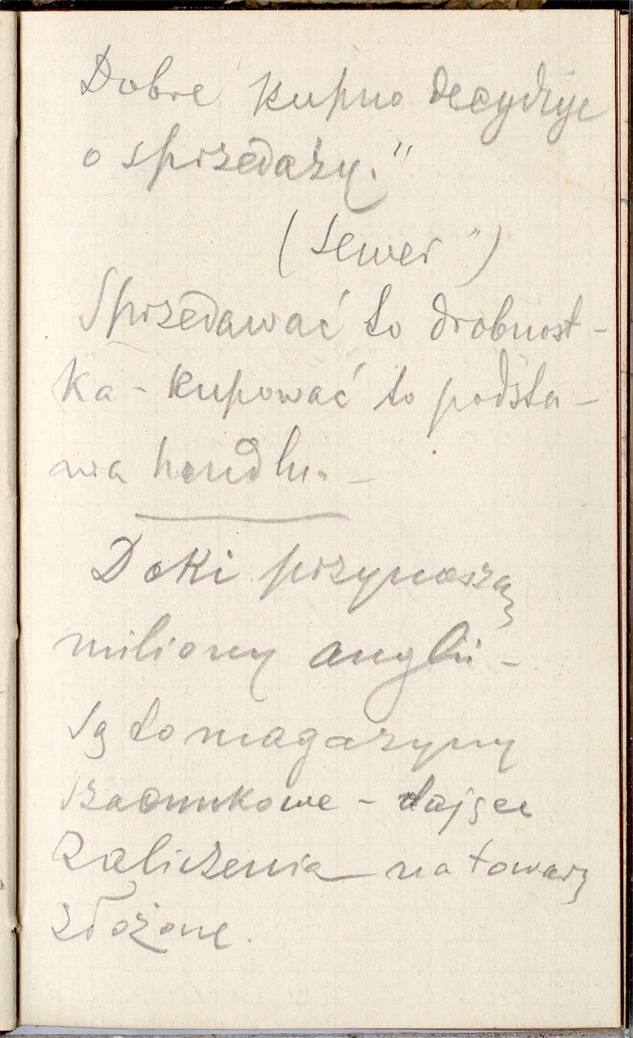 Dobre kupno decyduje
o sprzedaży."
(Sewer")
Sprzedawać to drobnost-
ka - kupować to podsta-
wa handlu. -
Doki przynoszą
miliony anglii -
Są to magazyny
szacunkowe - dające
Zaliczenia na towary
złożone.